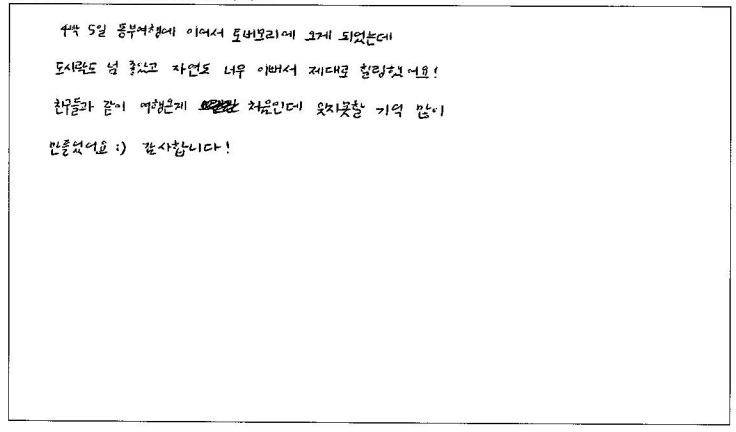 4박 5일 동부여행에 이어서 토버모리에 오게 되었는데
도시락도 넘 좋았고 자연도 너무 이뻐서 제대로 힐링했어요!
친구들과 같이 여행온게 처음인데 잊지못할 기억 많이
만들었어요 :) 감사합니다!